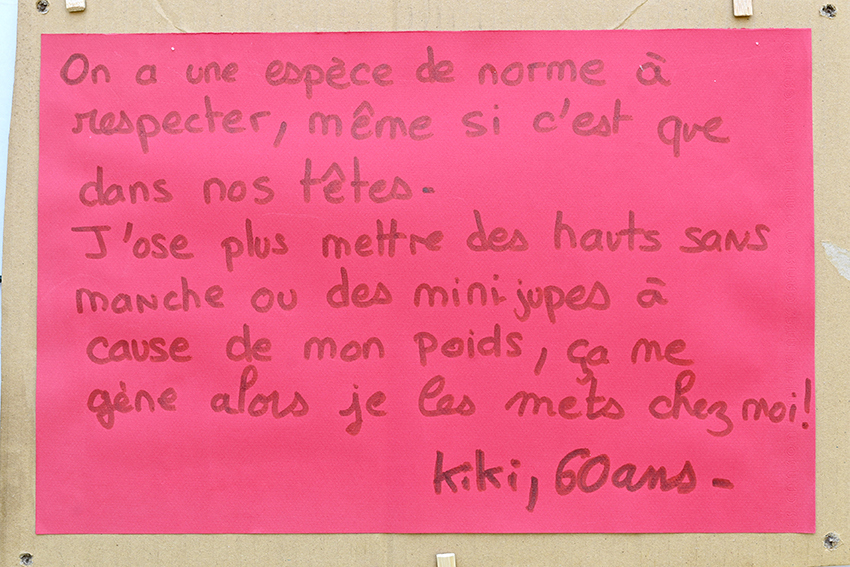 On a une espèce de norme à
respecter, même si c'est que
dans nos têtes.
J'ose plus mettre des hauts sans
manche ou des mini jupes à
cause de mon poids, ça me
gène alors je les mets chez moi!
kiki, 60 ans.